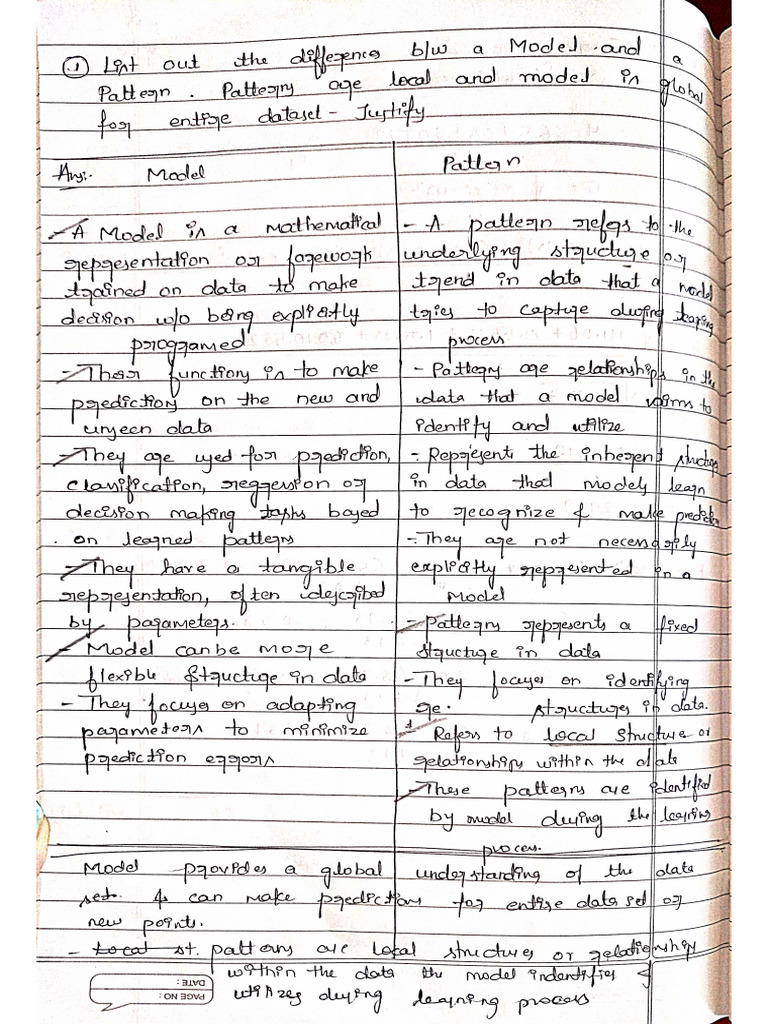 1) List out the differences b/w a Model and a
Pattern. Patterns are local and model is global
for entire dataset - Justify
Ans:- Model
- A Model is a mathematical
representation or farework
trained on data to make
decision w/o being explicitly
programed
- Their functions is to make
predictions on the new and
unseen data
- They are used for prediction,
classification, reggression or
decision making tasks based
on learned patterns
- They have a tangible
representation, often described
by parameters.
- Model can be more
flexible structure in data
- They focuses on adapting
parameters to minimize
prediction errors
Pattern
- A pattern refers to the
underlying structure or
trend in data that a model
tries to capture during
process
- Patterns are relationships in the
data that a model to
identify and utilize
- Represents the inherent structure
in data that models learn
to recognize & make
- They are not necessarily
explicitly represented in a
Model
- Patterns represents a fixed
structure in data
- They focuses on identifying
structures in data.
* Refers to local structure or
relationships within the data
- These patterns are identified
by model during the learning
process.
Model provides a global understanding of the data
set & can make predictions for entire data set or
new points.
- Local st. patterns are local structures or relationship
within the data the model indentifies &
utilizes during learning process
PAGE NO:
DATE: